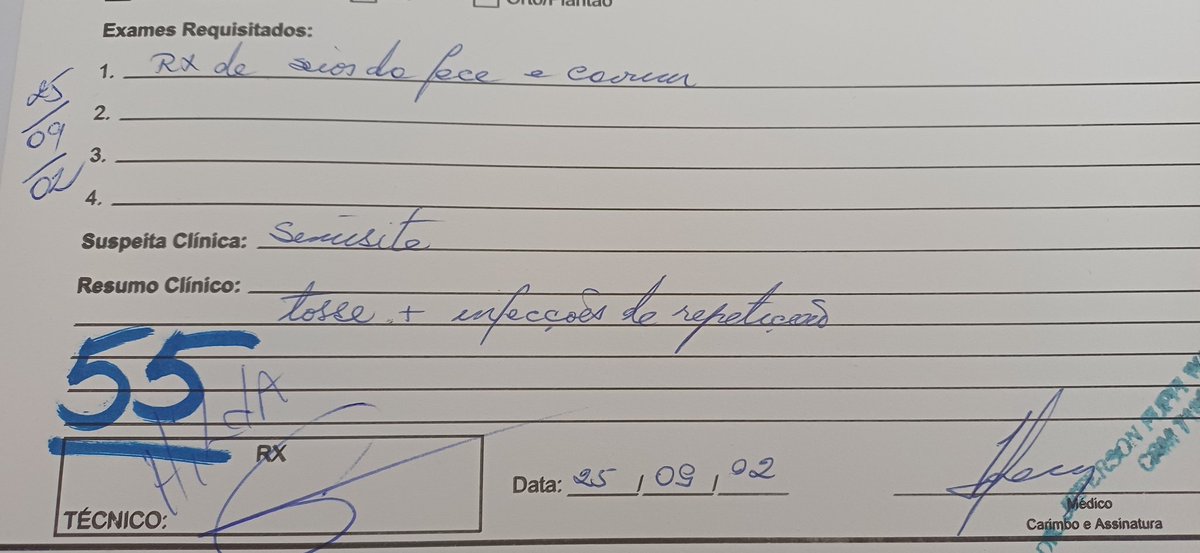 Orto/Plantão
Exames Requisitados:
1. RX de seios da face e cavum
2.
3.
4.
25
/09
/02
Suspeita Clínica: Senusite
Resumo Clínico:
tosse + infecções de repetição
55
RX
TÉCNICO:
Data: 25 / 09 / 02
Médico
Carimbo e Assinatura